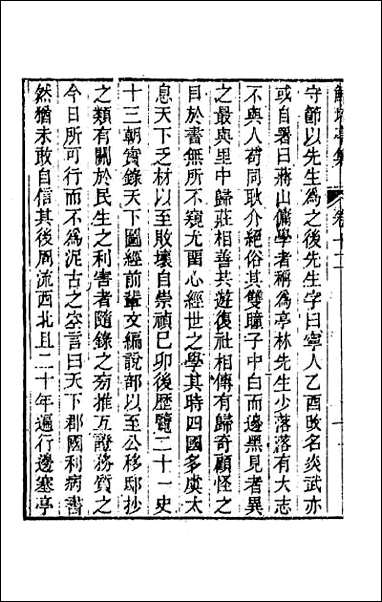 鮚埼亭集 卷十二
守節以先生爲之後先生字曰寧人乙酉改名炎武亦
或自署曰蔣山傭學者稱爲亭林先生少落落有大志
不與人苟同耿介絕俗其雙瞳子中白而邊黑見者異
之最與里中歸莊相善共遊復社相傳有歸奇顧怪之
目於書無所不窺尤留心經世之學其時四國多虞太
息天下乏材以至敗壞自崇禎己卯後歷覽二十一史
十三朝實錄天下圖經前輩文編說部以至公移邸抄
之類有關於民生之利害者隨錄之旁推互證務質之
今日所可行而不爲泥古之空言曰天下郡國利病書
然猶未敢自信其後周流西北且二十年遍行邊塞亭